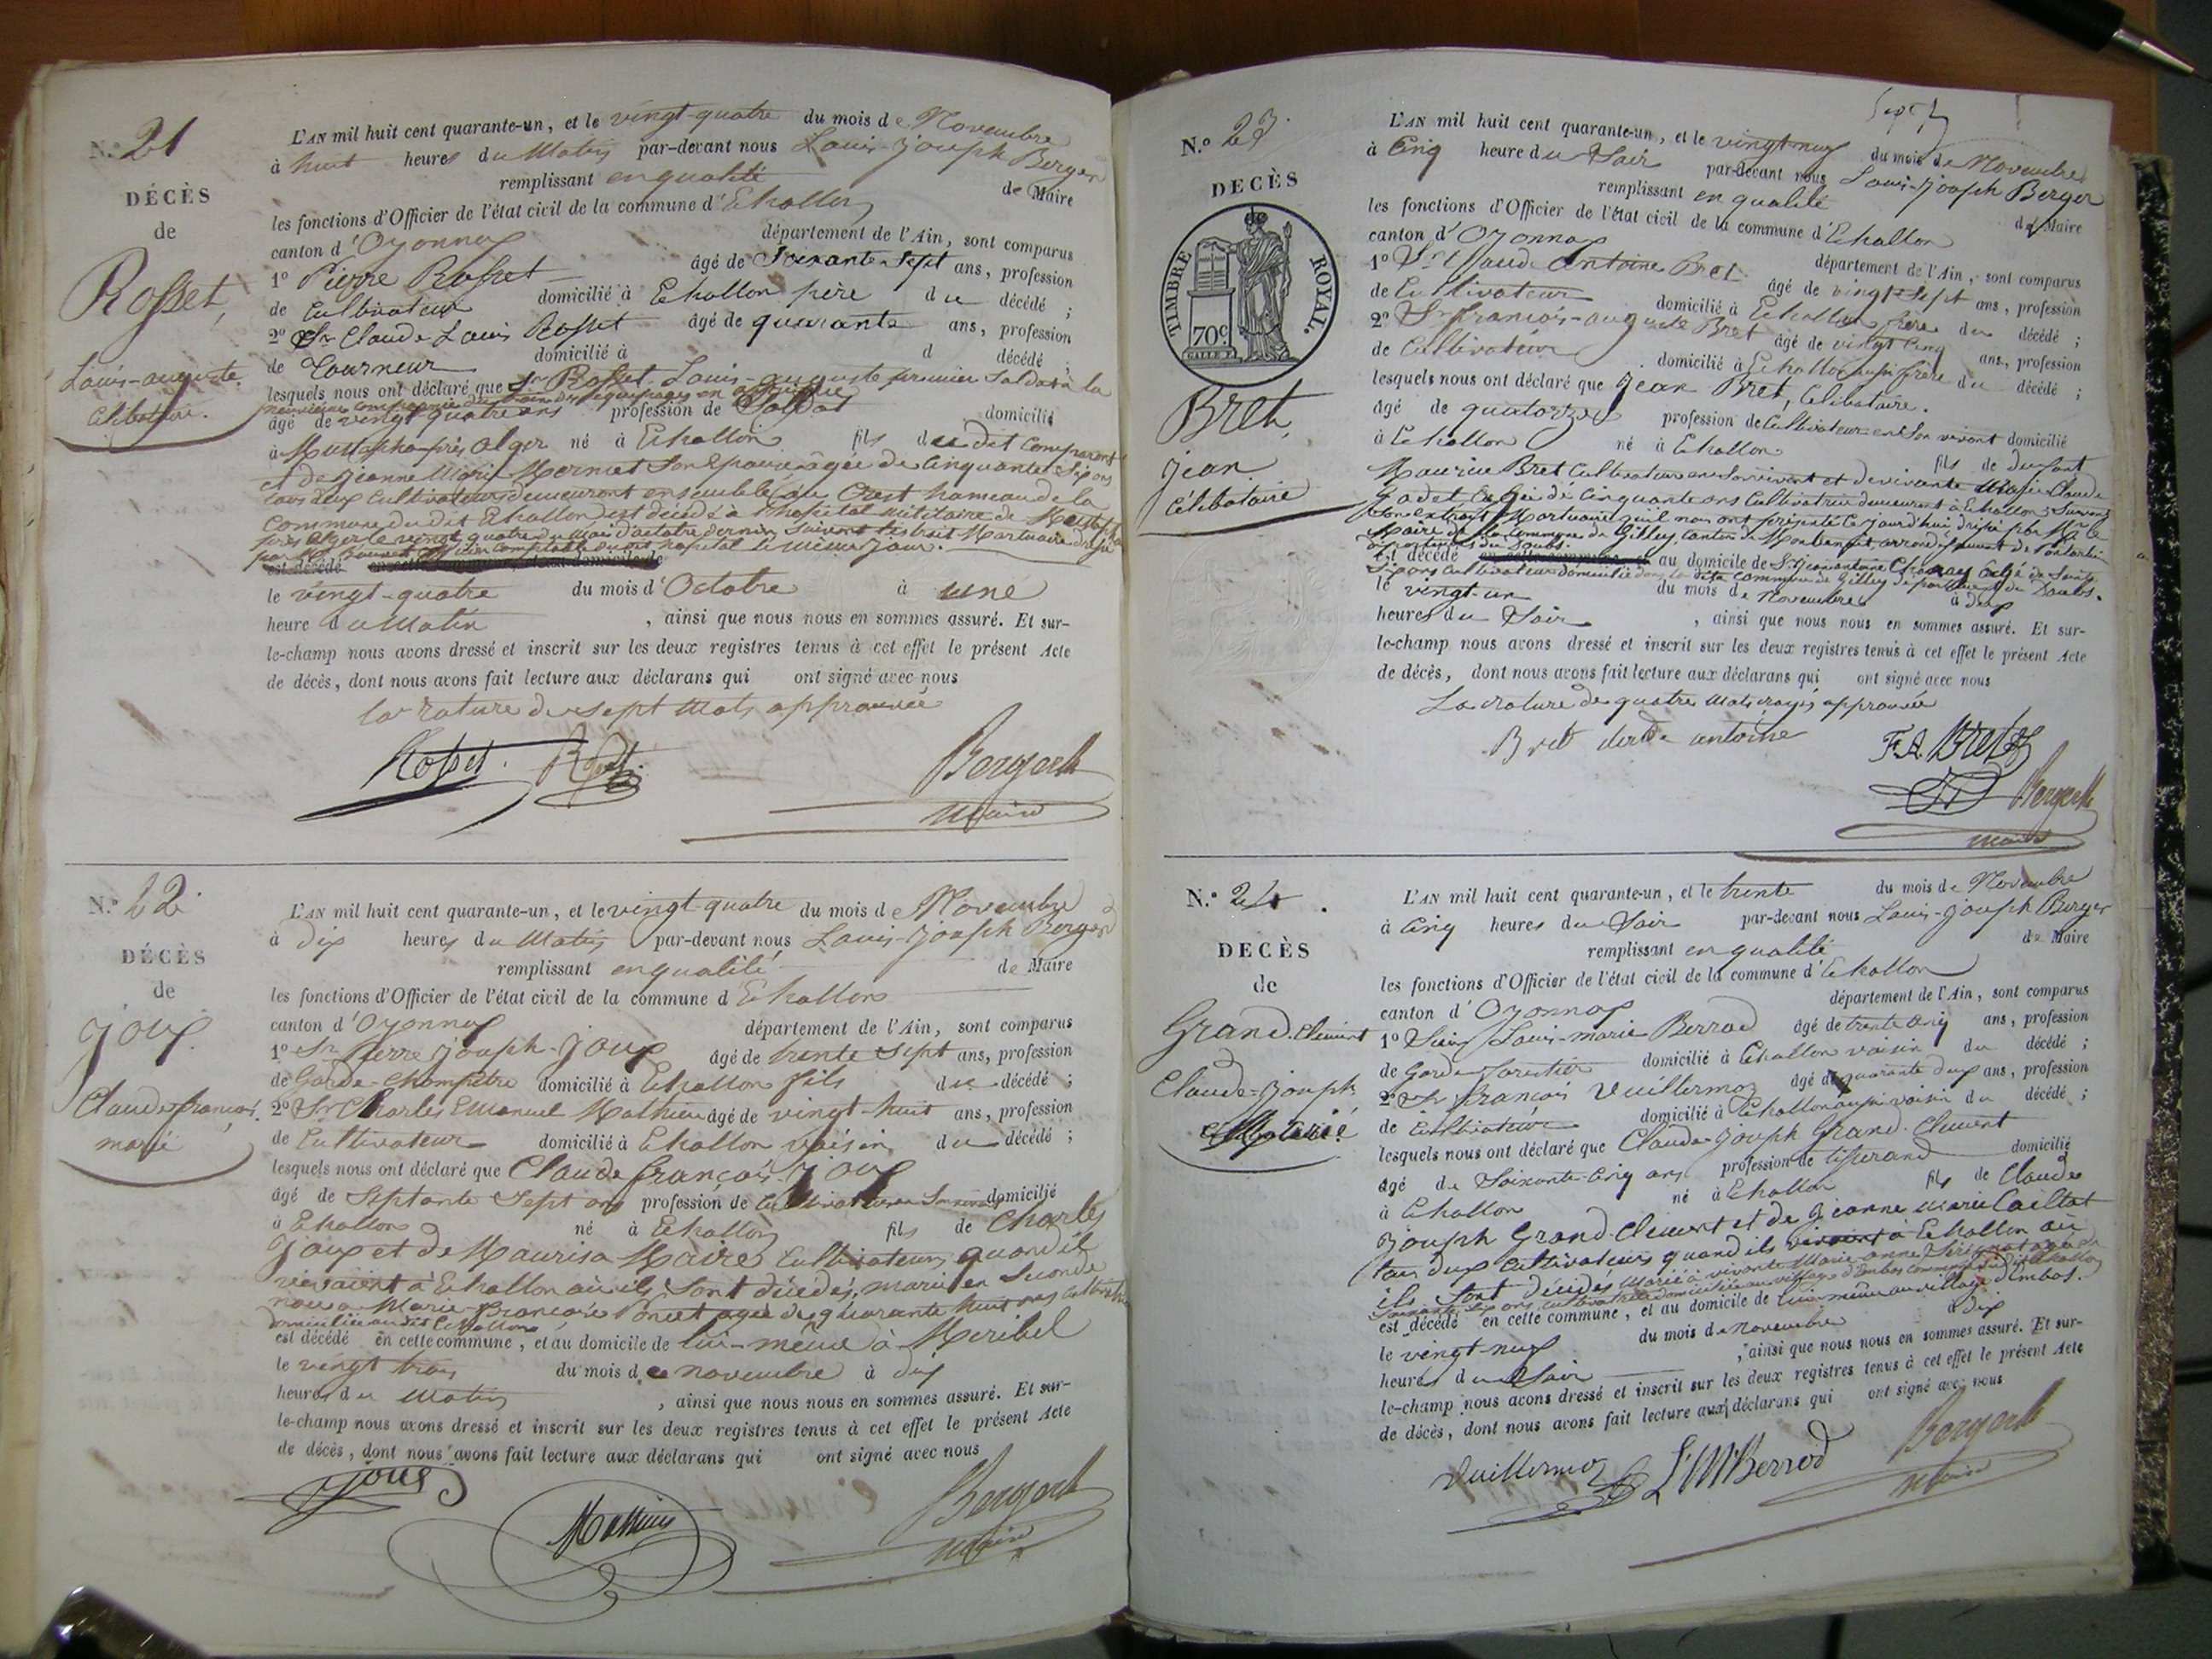 N.º 21
DÉCÈS
de
Rosset,
Louis-auguste
Célibataire.
L'AN mil huit cent quarante-un, et le vingt-quatre du mois de Novembre
à huit heures du Matin par-devant nous Louis-Joseph Berger
remplissant en qualité de Maire
les fonctions d'Officier de l'état civil de la commune d'Echallon
canton d'Oyonnax département de l'Ain, sont comparus
1º Pierre Rosset âgé de Soixante Sept ans, profession
de Cultivateur domicilié à Echallon père du décédé ;
2º Sr Claude Louis Rosset âgé de quarante ans, profession
de Tourneur domicilié à d décédé ;
lesquels nous ont déclaré que Sr Rosset Louis-auguste premier Soldat à la
neuvième compagnie du train des équipages en
âgé de vingt quatre ans profession de Soldat domicilié
à Mustapha près alger né à Echallon fils du dit Comparant
et de Jeanne Marie Mermet Son Epouse âgée de Cinquante Six ans
tous deux Cultivateurs demeurant ensemble au Crest hameau de la
Commune du dit Echallon est décédé à l'hôpital militaire de Mustapha
près Alger le vingt quatre du Mois d'octobre dernier Suivant l'extrait Mortuaire dressé
par Mr officier comptable du dit hopital le même jour.
est décédé en cette commune, et au domicile de
le vingt-quatre du mois d'Octobre à une
heure du Matin , ainsi que nous nous en sommes assuré. Et sur-
le-champ nous avons dressé et inscrit sur les deux registres tenus à cet effet le présent Acte
de décès, dont nous avons fait lecture aux déclarans qui ont signé avec nous
la rature de sept Mots approuvée
Rosset. Rosset
Berger
Maire
N.º 22
DÉCÈS
de
Joux
Claude françois
marié
L'AN mil huit cent quarante-un, et le vingt-quatre du mois de Novembre
à dix heures du Matin par-devant nous Louis-Joseph Berger
remplissant en qualité de Maire
les fonctions d'Officier de l'état civil de la commune d'Echallon
canton d'Oyonnax département de l'Ain, sont comparus
1º Sr Pierre Joseph Joux âgé de trente Sept ans, profession
de Garde-Champêtre domicilié à Echallon fils du décédé ;
2º Sr Charles Emanuel Mathieu âgé de vingt-huit ans, profession
de Cultivateur domicilié à Echallon voisin du décédé ;
lesquels nous ont déclaré que Claude françois Joux
âgé de Septante Sept ans profession de Cultivateur domicilié
à Echallon né à Echallon fils de Charles
Joux et de Maurisa Maire Cultivateurs quand ils
vivaient à Echallon où ils sont décédés, marié en Seconde
à Marie-françoise Poncet agée de quarante huit ans
domiciliée au dit Echallon
est décédé en cette commune, et au domicile de lui-même à Meribel
le vingt trois du mois de novembre à dix
heures du Matin , ainsi que nous nous en sommes assuré. Et sur-
le-champ nous avons dressé et inscrit sur les deux registres tenus à cet effet le présent Acte
de décès, dont nous avons fait lecture aux déclarans qui ont signé avec nous
Joux
Mathieu
Berger
Maire
N.º 23
DÉCÈS
TIMBRE ROYAL.
70c
Bret,
Jean
Célibataire
L'AN mil huit cent quarante-un, et le vingt-neuf du mois de Novembre
à Cinq heure du Soir par-devant nous Louis-Joseph Berger
remplissant en qualité de Maire
les fonctions d'Officier de l'état civil de la commune d'Echallon
canton d'Oyonnax département de l'Ain, sont comparus
1º Sr Claude Antoine Bret âgé de vingt-Sept ans, profession
de Cultivateur domicilié à Echallon frère du décédé ;
2º Sr françois-auguste Bret âgé de vingt Cinq ans, profession
de Cultivateur domicilié à Echallon aussi frère du décédé ;
lesquels nous ont déclaré que Jean Bret, Célibataire.
âgé de quatorze profession de Cultivateur en Son vivant domicilié
à Echallon né à Echallon fils de defunt
Maurice Bret Cultivateur en son vivant et de vivante Marie Claude
Godet Agée de Cinquante ans Cultivatrice demeurant à Echallon Suivant
Son extrait Mortuaire qu'il nous ont présenté ce jourd'hui par Mr le
Maire de la Commune de Gilley, Canton de Montbenoit, arrondissement de Pontarlier
département du Doubs
est décédé en cette commune et au domicile de Sr Jean antoine
ans Cultivateur domicilié dans la dite Commune de Gilley département du Doubs.
le vingt-un du mois de Novembre à deux
heures du Soir , ainsi que nous nous en sommes assuré. Et sur-
le-champ nous avons dressé et inscrit sur les deux registres tenus à cet effet le présent Acte
de décès, dont nous avons fait lecture aux déclarans qui ont signé avec nous
La rature de quatre Mots rayés approuvée
Bret antoine F.A. Bret
Berger
Maire
N.º 24
DÉCÈS
de
Grand-Clement
Claude-Joseph
Marié
L'AN mil huit cent quarante-un, et le trente du mois de Novembre
à Cinq heures du Soir par-devant nous Louis-Joseph Berger
remplissant en qualité de Maire
les fonctions d'Officier de l'état civil de la commune d'Echallon
canton d'Oyonnax département de l'Ain, sont comparus
1º Sieur Louis-marie Berrod âgé de trente Cinq ans, profession
de Garde forestier domicilié à Echallon voisin du décédé ;
2º Sr françois Vuillermoz âgé de quarante deux ans, profession
de Cultivateur domicilié à Echallon aussi voisin du décédé ;
lesquels nous ont déclaré que Claude-Joseph Grand-Clement
âgé de Soixante-Cinq ans profession de tisserand domicilié
à Echallon né à Echallon fils de Claude
Joseph Grand-Clement et de Jeanne Marie Caillat
tous deux Cultivateurs quand ils vivaient à Echallon où
ils sont décédés Marié à vivante Marie-anne agée de
Soixante Six ans, cultivatrice domiciliée au village d'Embas Commune du dit Echallon
est décédé en cette commune, et au domicile de lui-même au village d'Embas.
le vingt-neuf du mois de novembre à dix
heures du Soir , ainsi que nous nous en sommes assuré. Et sur-
le-champ nous avons dressé et inscrit sur les deux registres tenus à cet effet le présent Acte
de décès, dont nous avons fait lecture aux déclarans qui ont signé avec nous
Vuillermoz L M Berrod
Berger
Maire